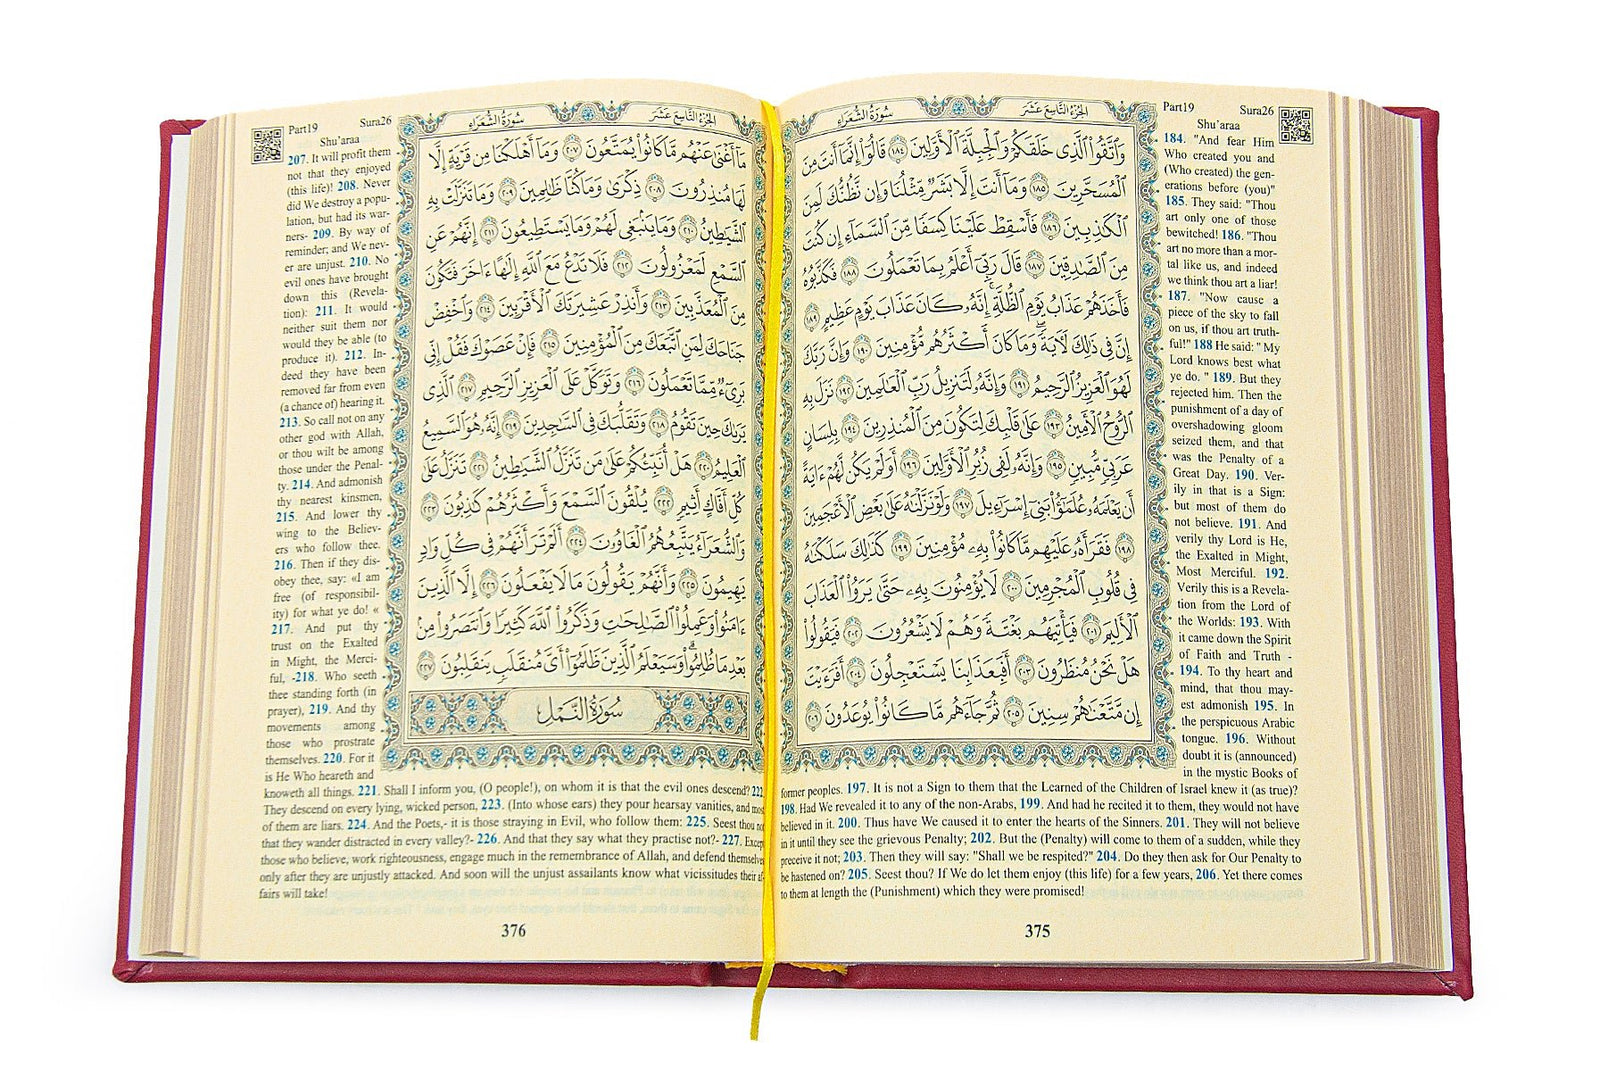 الجزء التاسع عشر
سورة الشعراء
وَاتَّقُوا الَّذِي خَلَقَكُمْ وَالْجِبِلَّةَ الْأَوَّلِينَ ١٨٤ قَالُوا إِنَّمَا أَنتَ مِنَ
الْمُسَحَّرِينَ ١٨٥ وَمَا أَنتَ إِلَّا بَشَرٌ مِّثْلُنَا وَإِن نَّظُنُّكَ لَمِنَ
الْكَاذِبِينَ ١٨٦ فَأَسْقِطْ عَلَيْنَا كِسَفًا مِّنَ السَّمَاءِ إِن كُنتَ
مِنَ الصَّادِقِينَ ١٨٧ قَالَ رَبِّي أَعْلَمُ بِمَا تَعْمَلُونَ ١٨٨ فَكَذَّبُوهُ
فَأَخَذَهُمْ عَذَابُ يَوْمِ الظُّلَّةِ إِنَّهُ كَانَ عَذَابَ يَوْمٍ عَظِيمٍ ١٨٩
إِنَّ فِي ذَٰلِكَ لَآيَةً وَمَا كَانَ أَكْثَرُهُم مُّؤْمِنِينَ ١٩٠ وَإِنَّ رَبَّكَ
لَهُوَ الْعَزِيزُ الرَّحِيمُ ١٩١ وَإِنَّهُ لَتَنزِيلُ رَبِّ الْعَالَمِينَ ١٩٢ نَزَلَ بِهِ
الرُّوحُ الْأَمِينُ ١٩٣ عَلَىٰ قَلْبِكَ لِتَكُونَ مِنَ الْمُنذِرِينَ ١٩٤ بِلِسَانٍ
عَرَبِيٍّ مُّبِينٍ ١٩٥ وَإِنَّهُ لَفِي زُبُرِ الْأَوَّلِينَ ١٩٦ أَوَلَمْ يَكُن لَّهُمْ آيَةً
أَن يَعْلَمَهُ عُلَمَاءُ بَنِي إِسْرَائِيلَ ١٩٧ وَلَوْ نَزَّلْنَاهُ عَلَىٰ بَعْضِ الْأَعْجَمِينَ
١٩٨ فَقَرَأَهُ عَلَيْهِم مَّا كَانُوا بِهِ مُؤْمِنِينَ ١٩٩ كَذَٰلِكَ سَلَكْنَاهُ
فِي قُلُوبِ الْمُجْرِمِينَ ٢٠٠ لَا يُؤْمِنُونَ بِهِ حَتَّىٰ يَرَوُا الْعَذَابَ
الْأَلِيمَ ٢٠١ فَيَأْتِيَهُم بَغْتَةً وَهُمْ لَا يَشْعُرُونَ ٢٠٢ فَيَقُولُوا
هَلْ نَحْنُ مُنظَرُونَ ٢٠٣ أَفَبِعَذَابِنَا يَسْتَعْجِلُونَ ٢٠٤ أَفَرَأَيْتَ
إِن مَّتَّعْنَاهُمْ سِنِينَ ٢٠٥ ثُمَّ جَاءَهُم مَّا كَانُوا يُوعَدُونَ ٢٠٦
Part19 Sura26
Shu'araa
184. "And fear Him
Who created you and
(Who created) the gen-
erations before (you)"
185. They said: "Thou
art only one of those
bewitched! 186. "Thou
art no more than a mor-
tal like us, and indeed
we think thou art a liar!
187. "Now cause a
piece of the sky to fall
on us, if thou art truth-
ful!" 188 He said: " My
Lord knows best what
ye do. " 189. But they
rejected him. Then the
punishment of a day of
overshadowing gloom
seized them, and that
was the Penalty of a
Great Day. 190. Ver-
ily in that is a Sign:
but most of them do
not believe. 191. And
verily thy Lord is He,
the Exalted in Might,
Most Merciful. 192.
Verily this is a Revela-
tion from the Lord of
the Worlds: 193. With
it came down the Spirit
of Faith and Truth -
194. To thy heart and
mind, that thou may-
est admonish 195. In
the perspicuous Arabic
tongue. 196. Without
doubt it is (announced)
in the mystic Books of
former peoples. 197. It is not a Sign to them that the Learned of the Children of Israel knew it (as true)?
198. Had We revealed it to any of the non-Arabs, 199. And had he recited it to them, they would not have
believed in it. 200. Thus have We caused it to enter the hearts of the Sinners. 201. They will not believe
in it until they see the grievous Penalty; 202. But the (Penalty) will come to them of a sudden, while they
preceive it not; 203. Then they will say: "Shall we be respited?" 204. Do they then ask for Our Penalty to
be hastened on? 205. Seest thou? If We do let them enjoy (this life) for a few years, 206. Yet there comes
to them at length the (Punishment) which they were promised!
375
الجزء التاسع عشر
سورة الشعراء
مَا أَغْنَىٰ عَنْهُم مَّا كَانُوا يُمَتَّعُونَ ٢٠٧ وَمَا أَهْلَكْنَا مِن قَرْيَةٍ إِلَّا
لَهَا مُنذِرُونَ ٢٠٨ ذِكْرَىٰ وَمَا كُنَّا ظَالِمِينَ ٢٠٩ وَمَا تَنَزَّلَتْ بِهِ
الشَّيَاطِينُ ٢١٠ وَمَا يَنبَغِي لَهُمْ وَمَا يَسْتَطِيعُونَ ٢١١ إِنَّهُمْ عَنِ
السَّمْعِ لَمَعْزُولُونَ ٢١٢ فَلَا تَدْعُ مَعَ اللَّهِ إِلَٰهًا آخَرَ فَتَكُونَ
مِنَ الْمُعَذَّبِينَ ٢١٣ وَأَنذِرْ عَشِيرَتَكَ الْأَقْرَبِينَ ٢١٤ وَاخْفِضْ
جَنَاحَكَ لِمَنِ اتَّبَعَكَ مِنَ الْمُؤْمِنِينَ ٢١٥ فَإِنْ عَصَوْكَ فَقُلْ إِنِّي
بَرِيءٌ مِّمَّا تَعْمَلُونَ ٢١٦ وَتَوَكَّلْ عَلَى الْعَزِيزِ الرَّحِيمِ ٢١٧ الَّذِي
يَرَاكَ حِينَ تَقُومُ ٢١٨ وَتَقَلُّبَكَ فِي السَّاجِدِينَ ٢١٩ إِنَّهُ هُوَ السَّمِيعُ
الْعَلِيمُ ٢٢٠ هَلْ أُنَبِّئُكُمْ عَلَىٰ مَن تَنَزَّلُ الشَّيَاطِينُ ٢٢١ تَنَزَّلُ عَلَىٰ
كُلِّ أَفَّاكٍ أَثِيمٍ ٢٢٢ يُلْقُونَ السَّمْعَ وَأَكْثَرُهُمْ كَاذِبُونَ ٢٢٣
وَالشُّعَرَاءُ يَتَّبِعُهُمُ الْغَاوُونَ ٢٢٤ أَلَمْ تَرَ أَنَّهُمْ فِي كُلِّ وَادٍ
يَهِيمُونَ ٢٢٥ وَأَنَّهُمْ يَقُولُونَ مَا لَا يَفْعَلُونَ ٢٢٦ إِلَّا الَّذِينَ
آمَنُوا وَعَمِلُوا الصَّالِحَاتِ وَذَكَرُوا اللَّهَ كَثِيرًا وَانتَصَرُوا مِن
بَعْدِ مَا ظُلِمُوا وَسَيَعْلَمُ الَّذِينَ ظَلَمُوا أَيَّ مُنقَلَبٍ يَنقَلِبُونَ ٢٢٧
سُورَةُ النَّمْلِ
Part19 Sura26
Shu'araa
207. It will profit them
not that they enjoyed
(this life)! 208. Never
did We destroy a popu-
lation, but had its war-
ners- 209. By way of
reminder; and We nev-
er are unjust. 210. No
evil ones have brought
down this (Revela-
tion): 211. It would
neither suit them nor
would they be able (to
produce it). 212. In-
deed they have been
removed far from even
(a chance of) hearing it.
213. So call not on any
other god with Allah,
or thou wilt be among
those under the Penal-
ty. 214. And admonish
thy nearest kinsmen,
215. And lower thy
wing to the Believ-
ers who follow thee.
216. Then if they dis-
obey thee, say: «I am
free (of responsibil-
ity) for what ye do! «
217. And put thy
trust on the Exalted
in Might, the Merci-
ful, -218. Who seeth
thee standing forth (in
prayer), 219. And thy
movements among
those who prostrate
themselves. 220. For it
is He Who heareth and
knoweth all things. 221. Shall I inform you, (O people!), on whom it is that the evil ones descend? 222.
They descend on every lying, wicked person, 223. (Into whose ears) they pour hearsay vanities, and most
of them are liars. 224. And the Poets,- it is those straying in Evil, who follow them: 225. Seest thou not
that they wander distracted in every valley?- 226. And that they say what they practise not?- 227. Except
those who believe, work righteousness, engage much in the remembrance of Allah, and defend themselves
only after they are unjustly attacked. And soon will the unjust assailants know what vicissitudes their af-
fairs will take!
376